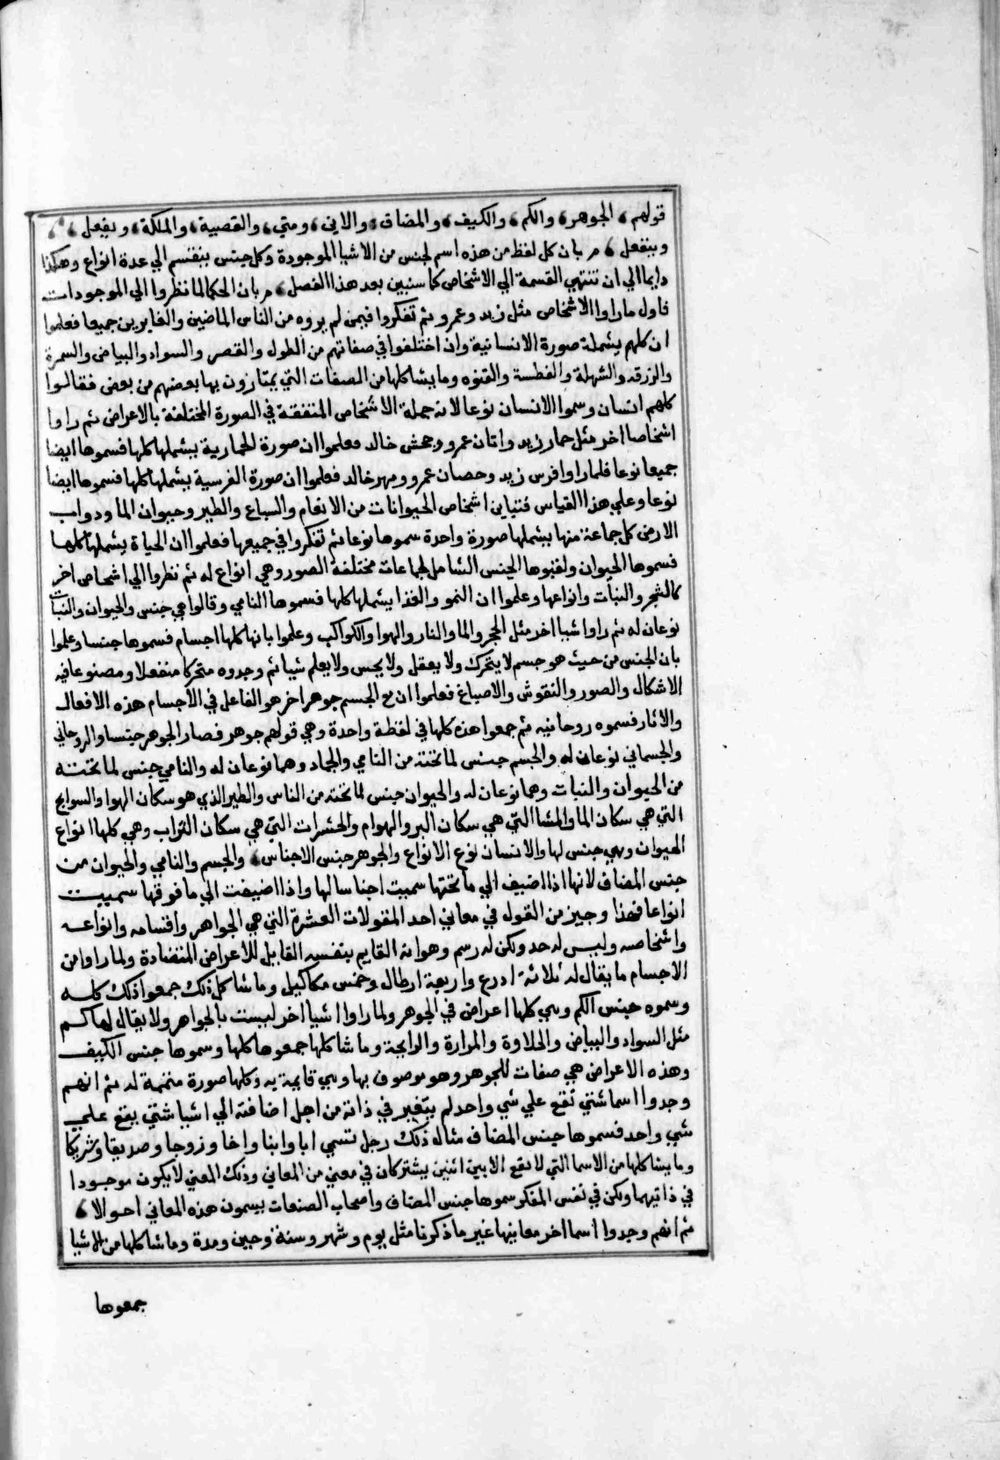 قولهم، الجوهر، والكم، والكيف، والمضاف، والاين، ومتي، والقصبية، والملكة، ويفعل،،
وينفعل، مر بان كل لفظ من هذه اسم لجنس من الاشيا الموجودة وكل جنس ينقسم الي عدة انواع وهكذا
دايما الي ان تنتهي القسمة الي الاشخاص كما سنبين بعد هذا الفصل، مر بان الحكما لما نظروا الي الموجودات
فاول ما راوا الاشخاص مثل زيد وعمرو ثم تفكروا فيمن لم يروه من الناس الماضين والغابرين جميعا فعلموا
ان كلهم يشملة صورة الانسانية وان اختلفوا في صفاتهم من الطول والقصر والسواد والبياض والسمرة
والزرقه والشهلة والفطسة والقنوه وما يشاكلها من الصفات التي يمتازون بها بعضهم من بعض فقالوا
كلهم انسان وسموا الانسان نوعا لانه جملة الاشخاص المتفقة في الصورة المختلفة بالاعراض ثم راوا
اشخاصا اخر مثل حمار زيد واتان عمرو وجحش خالد فعلموا ان صورة الحمارية يشملها كلها فسموها ايضا
جميعا نوعا فلما راوا فرس زيد وحصان عمرو ومهر خالد فعلموا ان صورة الفرسية يشملها كلها فسموها ايضا
نوعا وعلي هذا القياس فتباين اشخاص الحيوانات من الانعام والسباع والطير وحيوان الما ودواب
الارض كل جماعة منها يشملها صورة واحدة سموها نوعا ثم تفكروا في جميعها فعلموا ان الحياة يشملها كلها
فسموها الحيوان ولقبوها الجنس الشامل لجماعات مختلفة الصور وهي انواع له ثم نظروا الي اشخاص اخر
كالشجر والنبات وانواعها وعلموا ان النمو والغذا يشملها كلها فسموها النامي وقالوا هي جنس والحيوان والنبات
نوعان له ثم راوا شيا اخر مثل الحجر والما والنار والهوا والكواكب وعلموا بانها كلها اجسام فسموها جنسا وعلموا
بان الجنس من حيث هو جسم لا يتحرك ولا يعقل ولا يحس ولا يعلم شيا ثم وجدوه متحركا منفعلا ومصنوعا فيه
الاشكال والصور والنقوش والاصباغ فعلموا ان مع الجسم جوهر اخر هو الفاعل في الاجسام هذه الافعال
والاثار فسموه روحانيه ثم جمعوا هذه كلها في لفظة واحدة وهي قولهم جوهر فصار الجوهر جنسا والروحاني
والجسماني نوعان له والجسم جنس لما تحته من النامي والجماد وهما نوعان له والنامي جنس لما تحته
من الحيوان والنبات وهما نوعان له والحيوان جنس لما تحته من الناس والطير الذي هو سكان الهوا والسوابح
التي هي سكان الما والمشا التي هي سكان البر والهوام والحشرات التي هي سكان التراب وهي كلها انواع
الحيوان وهي جنس لها والانسان نوع الانواع والجوهر جنس الاجناس، والجسم والنامي والحيوان من
جنس المضاف لانها اذا اضيف الي ما تحتها سميت اجناسا لها واذا اضيفت الي ما فوقها سميت
انواعا فهذا وجيز من القول في معاني احد المقولات العشرة التي هي الجواهر واقسامه وانواعه
واشخاصه وليس له حد ولكن له رسم وهو انه القايم بنفسه القابل للاعراض المتضادة ولما راوا من
الاجسام ما يقال له ثلاثة ادرع واربعة ارطال وخمس مكاكيل وما شاكل ذلك جمعوا ذلك كله
وسموه جنس الكم وهي كلها اعراض في الجوهر ولما راوا اشيا اخر ليست بالجواهر ولا يقال لها كم
مثل السواد والبياض والحلاوة والمرارة والرايحة وما شاكلها جمعوها كلها وسموها جنس الكيف
وهذه الاعراض هي صفات للجوهر وهو موصوف بها وهي قايمة به وكلها صورة متممة له ثم انهم
وجدوا اسما شتي تقع علي شي واحد لم يتغير في ذاته من اجل اضافته الي اشيا شتي يقع علي
شي واحد فسموها جنس المضاف مثاله ذلك رجل تسمي ابا وابنا واخا وزوجا وصديقا وشريكا
وما يشاكلها من الاسما التي لا يقع الا بين اثنين يشتركان في معني من المعاني وذلك المعني لا يكون موجودا
في ذاتيهما ولكن في نفس المفكر سموها جنس المضاف واصحاب الصنعات يسمون هذه المعاني احوالا،
ثم انهم وجدوا اسما اخر معانيها غير ما ذكرنا مثل يوم وشهر وسنة وحين ومدة وما شاكلها من الاشيا
جمعوها